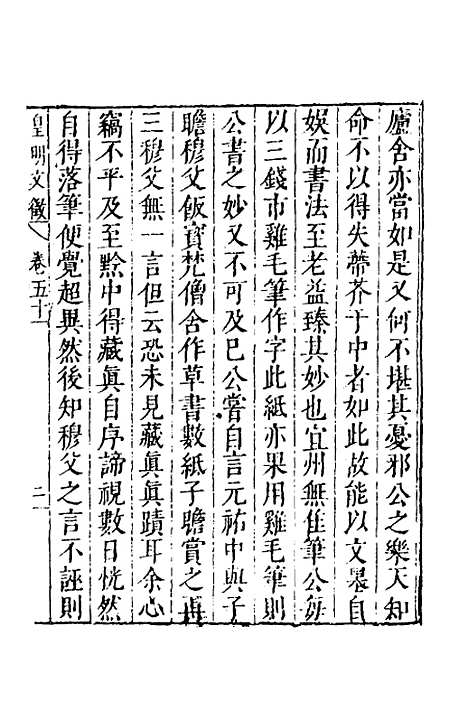 廬舍亦當如是又何不堪其憂邪公之樂天知
命不以得失蔕芥于中者如此故能以文墨自
娛而書法至老益臻其妙也宜州無佳筆公每
以三錢市雞毛筆作字此紙亦果用雞毛筆則
公書之妙又不可及已公嘗自言元祐中與子
瞻穆父飯寶梵僧舍作草書數紙子瞻賞之再
三穆父無一言但云恐未見藏眞眞蹟耳余心
竊不平及至黔中得藏眞自序諦視數日恍然
自得落筆便覺超異然後知穆父之言不誣則
皇明文徵 卷五十一 二